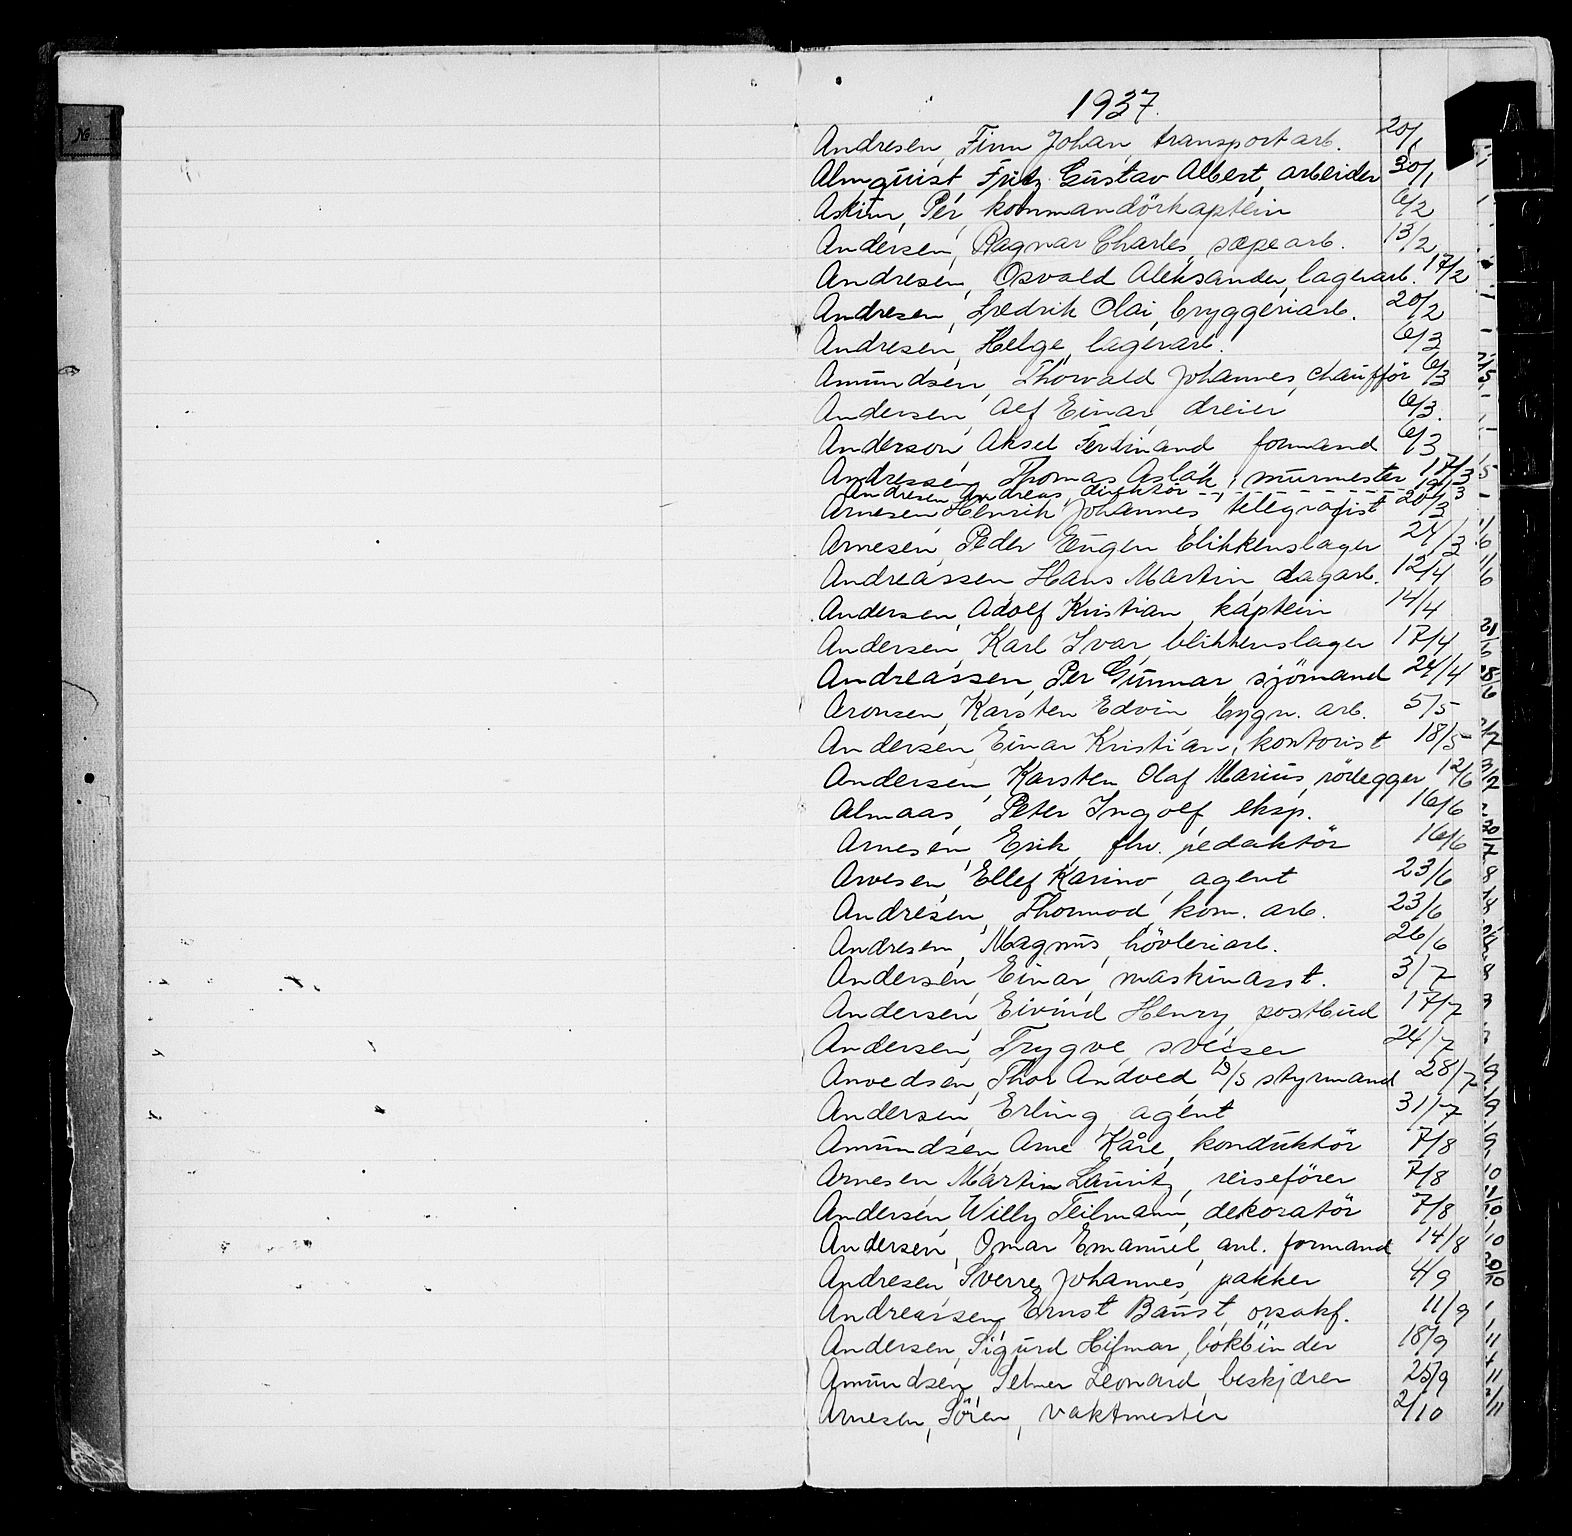 1937.
Andresen, Finn Johan, transportarb. 20/1
Almquist, Fritz Gustav Albert, arbeider 30/1
Askim, Per, kommandörkaptein 6/2
Andersen, Ragnar Charles, sæpearb. 13/2
Andresen, Osvald Aleksander, lagerarb. 17/2
Andresen, Fredrik Olai, bryggeriarb. 20/2
Andresen, Helge, lagerarb. 6/3
Amundsen, Thorvald Johannes, chauffør 6/3
Andersen, Alf Einar, dreier 6/3.
Anderson, Aksel Ferdinand formand 6/3
Andressen, Thomas Aslak, murmester 17/3
Andresen, Andreas, direktör
Arnesen Henrik Johannes telegrafist 20/3
Arnesen, Peder Eugen blikkenslager 24/3
Andreassen Hans Martin, dagarb. 12/4
Andersen, Adolf Kristian kaptein 14/4
Andersen, Karl Ivar, blikkenslager 17/4
Andreassen, Per Gunnar sjömand 24/4
Aronsen, Karsten Edvin, bygn. arb. 5/5
Andersen, Einar Kristian, kontorist 18/5
Andersen, Karsten Olaf Marius, rörlegger 12/6
Almaas, Peter Ingolf, eksp. 16/6
Arnesen, Erik, fhv. redaktör 16/6
Arvesen, Ellef Karino, agent 23/6
Andresen, Thormod, kom. arb. 23/6
Andresen, Magnus, hövleriarb. 26/6
Andersen, Einar, maskinasst. 3/7
Andersen, Eivind Henry, postbud 17/7
Andersen, Trygve, sveiser 24/7
Anvedsen, Thor Andved D/S styrmand 28/7
Andersen, Erling, agent 31/7
Amundsen, Arne Kåre, konduktör 7/8
Arnesen Martin Lauritz, reiseförer 7/8
Andersen, Willy Teilmann, dekoratör 7/8
Andersen, Omar Emanuel, anl. formand 14/8
Andresen, Sverre Johannes, pakker 4/9
Andreassen, Ernst Baust, orsakf. 11/9
Andersen, Sigurd Hifmar, bokbinder 18/9
Amundsen, Selmer Leonard, beskjærer 25/9
Arnesen, Sören, vaktmester 2/10